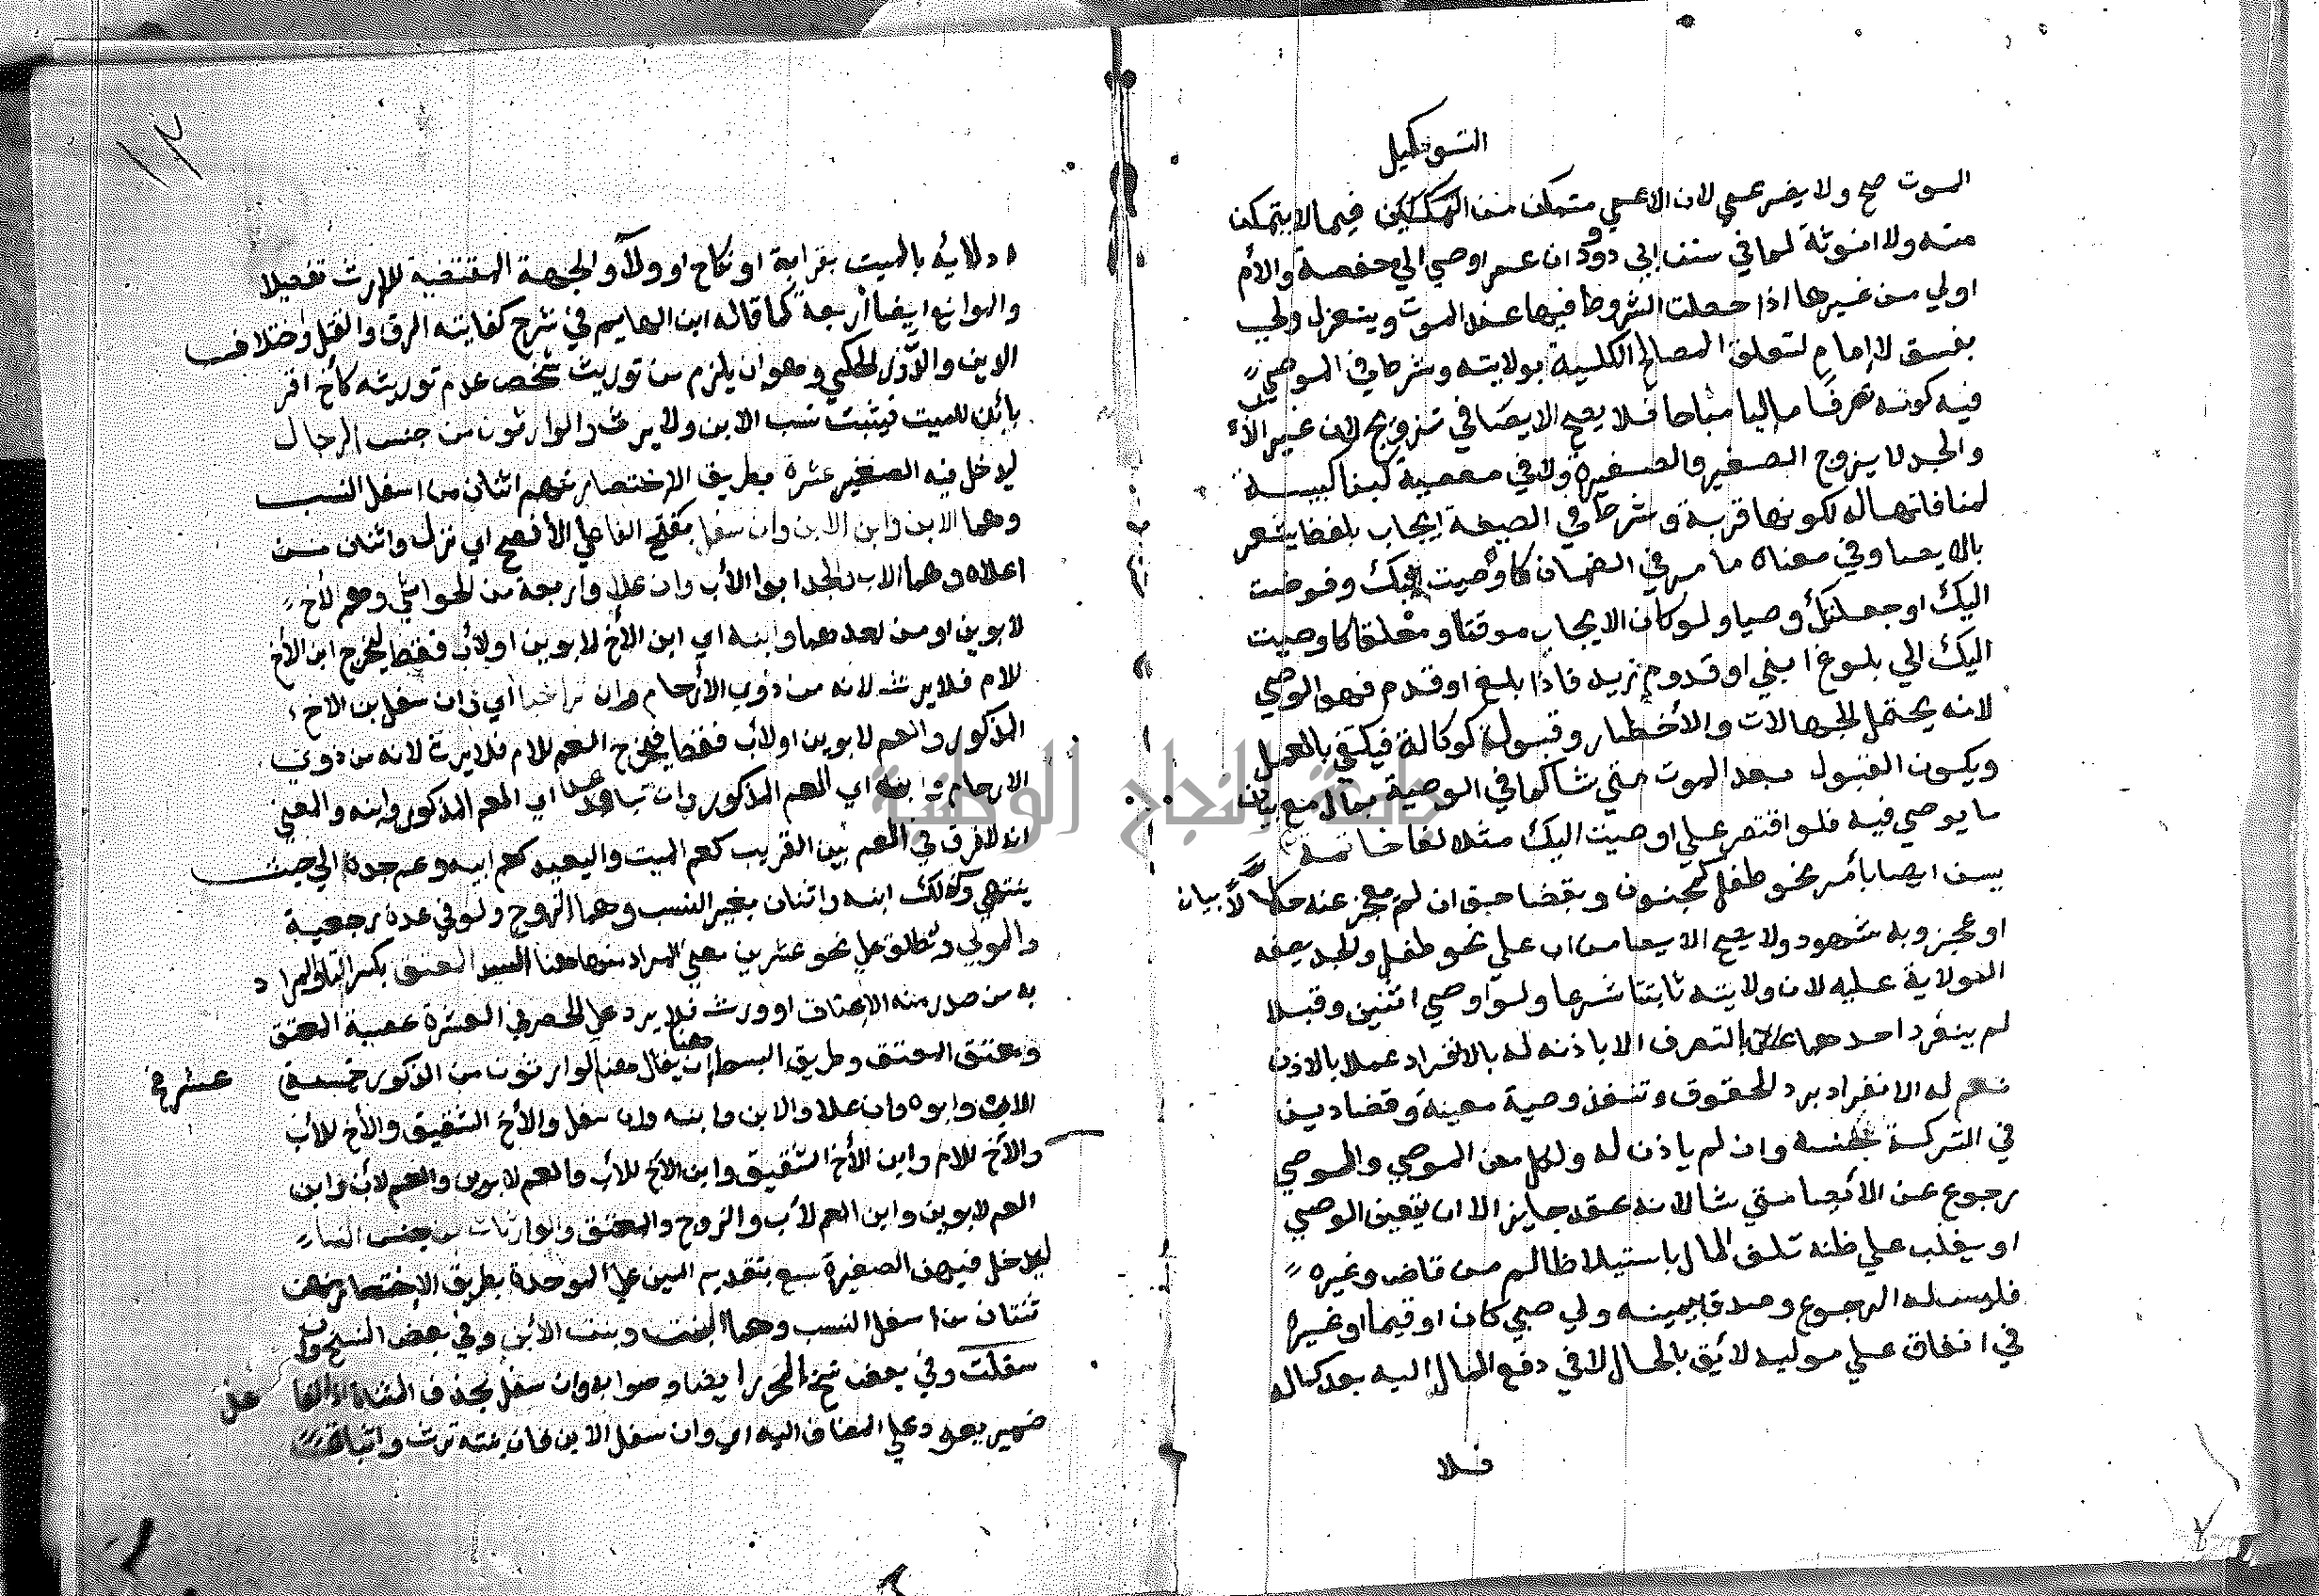 التوكيل
الموت صح ولا يضر عمي لان الاعمي متمكن من التوكيل فيما لا يتمكن
منه ولا انوثة لما في سنن ابي داود ان عمر اوصي الي حفصة والأم
اولي من غيرها اذا حصلت الشروط فيها عند الموت وينعزل ولي
بفسق لا إمام لتعلق المصالح الكلية بولايته وشرط في الموصي
فيه كونه تصرفا ماليا مباحا فلا يصح الايصا في تزويج لان غير الأب
والجد لا يزوج الصغير والصغيرة ولا في معصية كبنا كنيسة
لمنافاتها له لكونها قربة وشرط في الصيغة ايجاب بلفظ يشعر
بالايصا وفي معناه ما مر في الضمان كاوصيت اليك وفوضت
اليك او جعلتك وصيا ولو كان الايجاب موقتا ومعلقا كاوصيت
اليك الي بلوغ ابني او قدوم زيد فاذا بلغ او قدم فهو الوصي
لانه يحتمل الجهالات والأخطار وقبول كوكالة فيكتفي بالعمل
ويكون القبول بعد الموت متي شا كما في الوصية بمال مع بيان
ما يوصي فيه فلو اقتصر علي اوصيت اليك مثلا لغا خاتمة
يسن ايصا بأمر نحو طفل كمجنون وبقضا حق ان لم يعجز عنه حالا
او عجز وبه شهود ولا يصح الايصا من اب علي نحو طفل والجد بصفة
الولاية عليه لان ولايته ثابتتا شرعا ولو اوصي اثنين وقبلا
لم ينفرد احدهما بالتصرف الا باذنه له بالانفراد عملا بالاذن
نعم له الانفراد برد الحقوق وتنفيذ وصية معينة وقضا دين
في التركة جنسه وان لم ياذن له ولكل من الموصي والموصي
رجوع عن الأيصا متي شا لانه عقد جايز الا ان يتعين الوصي
او يغلب علي ظنه تلف المال باستيلا ظالم من قاض وغيره
فليس له الرجوع وصدق بيمينه ولي صبي كان او قيما او غيره
في انفاق علي موليه لائق بالحال لا في دفع المال اليه بعد كماله
فلا
١٢
ادلائه بالميت بقرابة او نكاح او ولاً والجهة المقتضية للإرث تفصيلا
والموانع ايضا أربعة كما قاله ابن الهايم في شرح كفايته الرق والقتل واختلاف
الدين والدور الحكمي وهو ان يلزم من توريث شخص عدم توريثه كأخ اقر
بابن للميت فيثبت نسب الابن ولا يرث والوارثون من جنس الرجال
ليدخل فيه الصغير عشرة بطريق الاختصار منهم اثنان من اسفل النسب
وهما الابن وابن الابن وان سفل بفتح الفا علي الأفصح اي نزل واثنان من
اعلاه وهما الاب والجد ابو الأب وان علا واربعة من الحواشي وهم الأخ
لابوين او من احدهما وابنه اي ابن الأخ لابوين او لأب فقط ليخرج ابن الأخ
للام فلا يرث لانه من ذوي الأرحام وان تراخيا اي وان سفل ابن الاخ
المذكور والعم لابوين او لأب فقط فيخرج العم للام فلا يرث لانه من ذوي
الارحام وابنه اي العم المذكور وان تباعدا اي العم المذكور وابنه والمعني
انه لا فرق في العم بين القريب كعم الميت والبعيد كعم ابيه وعم جده الي حيث
ينتهي وكذلك ابنه واثنان بغير النسب وهما الزوج ولو في عدة رجعية
والمولي ويطلق علي نحو عشرين معني المراد منها هنا السيد المعتق بكسر التا والمراد
به من صدر منه الإعتاق او ورث فلا يرد علي الحصر في العشرة عصبة المعتق
ومعتق المعتق وطريق البسط هنا ان يقال الوارثون من الذكور خمسة عشر
الاب وابوه وان علا والابن وابنه وان سفل والأخ الشقيق والأخ للأب
والأخ للام وابن الأخ الشقيق وابن الأخ للأب والعم لابوين والعم لأب وابن
العم لابوين وابن العم لأب والزوج والمعتق والوارثات من جنس النسا
ليدخل فيهن الصغيرة سبع بتقديم السين علي الموحدة بطريق الإختصار منهن
ثنتان من اسفل النسب وهما البنت وبنت الابن وفي بعض النسخ وان
سفلت وفي بعض نسخ المحرر ايضا وصوابه وان سفل بحذف المثناة
ضمير يعود علي المضاف اليه اي وان سفل الابن فان بنته ترث